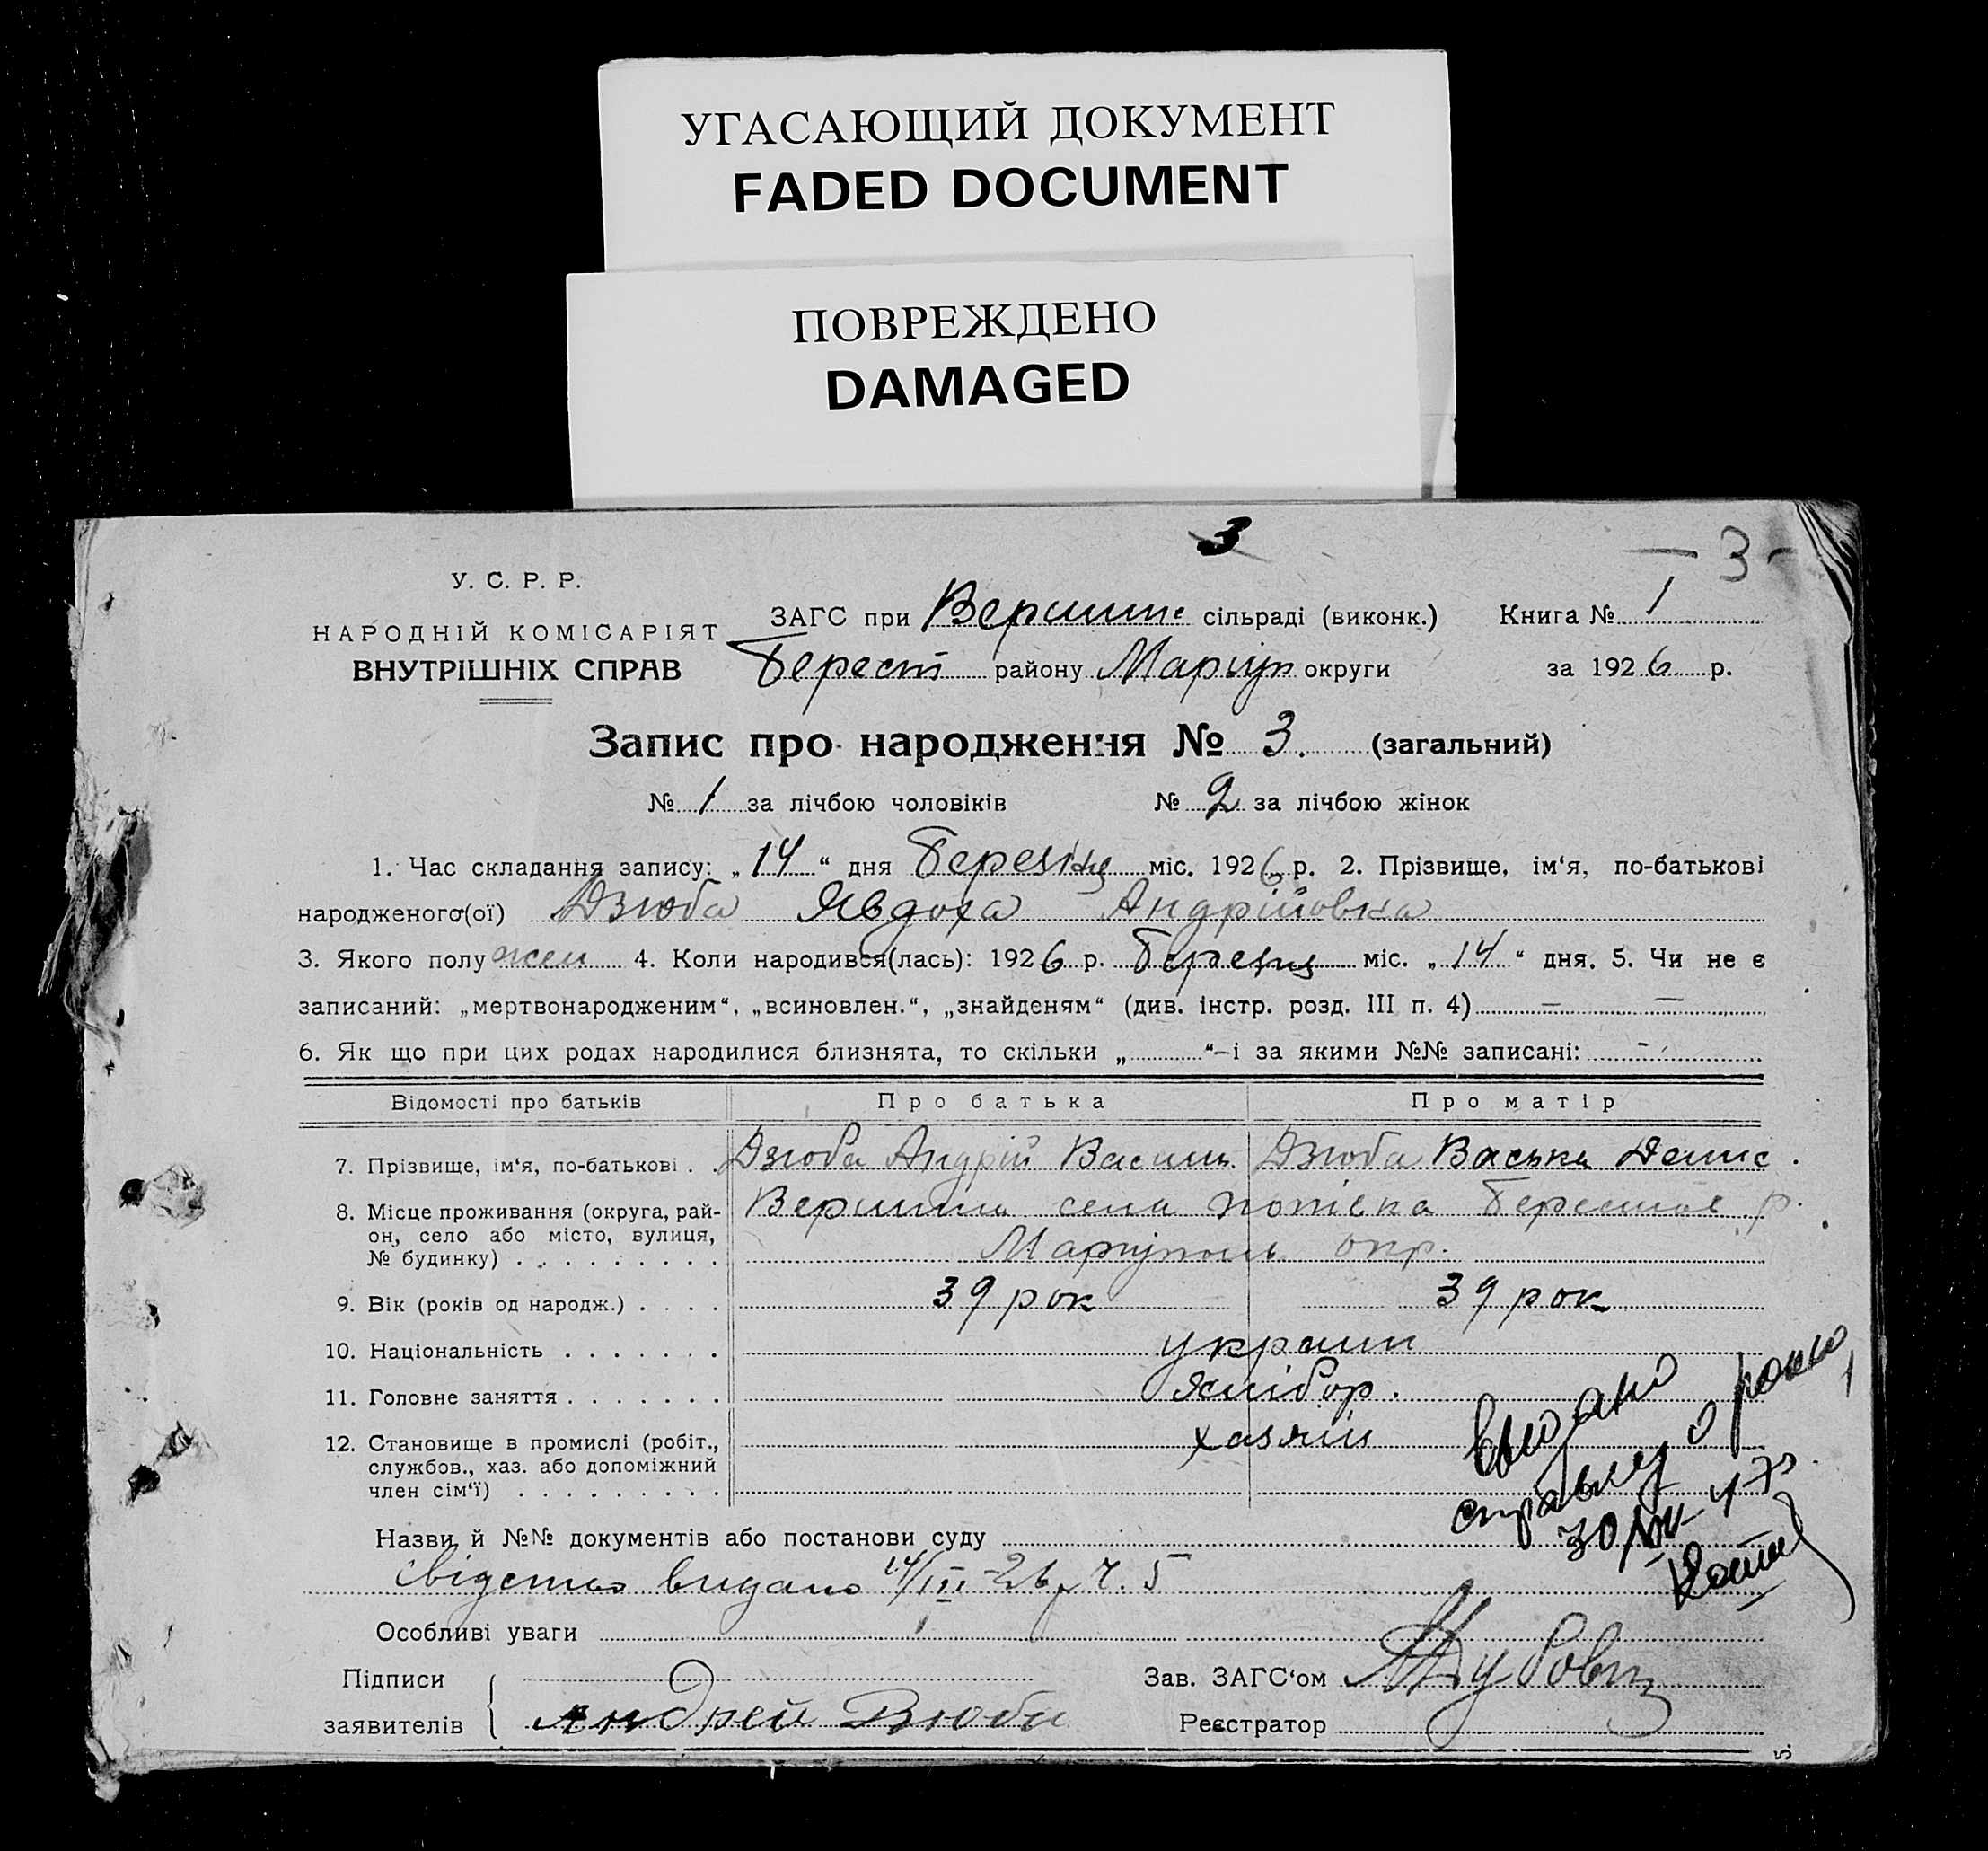 УГАСАЮЩИЙ ДОКУМЕНТ
FADED DOCUMENT
ПОВРЕЖДЕНО
DAMAGED
3
— 3 -
У. С. Р. Р.
НАРОДНІЙ КОМІСАРІЯТ
ВНУТРІШНІХ СПРАВ
ЗАГС при Вершин. сільраді (виконк.) Книга № 1
Берест району Маріуп округи за 1926 р.
Запис про народження № 3. (загальний)
№ 1 за лічбою чоловіків № 2 за лічбою жінок
1. Час складання запису: „14“ дня Березня міс. 1926 р. 2. Прізвище, ім‘я, по-батькові
народженого(ої) Дзюба Явдоха Андрійовна
3. Якого полу жен 4. Коли народився(лась): 1926 р. Березня міс. „14“ дня. 5. Чи не є
записаний: „мертвонародженим“, „всиновлен.“, „знайденям“ (див. інстр. розд. III п. 4) — —
6. Як що при цих родах народилися близнята, то скільки „ “—і за якими №№ записані: -
Відомості про батьків Про батька Про матір
7. Прізвище, ім‘я, по-батькові . . Дзюба Андрій Василь. Дзюба Васька Денис.
8. Місце проживання (округа, рай-
он, село або місто, вулиця,
№ будинку) . . . . . . . . .
села Попівка р.
Маріуполь окр.
9. Вік (років од народж.) . . . . 39 рок 39 рок
10. Національність . . . . . . . украин
11. Головне заняття . . . . . . . Хлібор.
12. Становище в промислі (робіт.,
службов., хаз. або допоміжний
член сім‘ї) . . . . . . . . .
хазяин
справку о
Назви й №№ документів або постанови суду
видано 14/III-26 р. ч. 5
Особливі уваги
Підписи
заявителів
Андрей Дзюба
Зав. ЗАГС‘ом
Реєстратор
5.